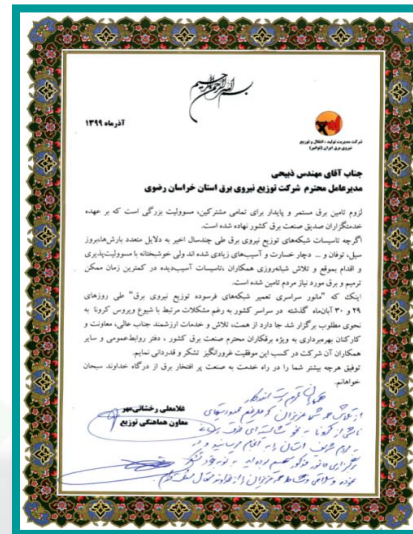 بسم الله الرحمن الرحیم
آذرماه ۱۳۹۹
شرکت مدیریت تولید، انتقال و توزیع
نیروی برق ایران (توانیر)
جناب آقای مهندس ذبیحی
مدیرعامل محترم شرکت توزیع نیروی برق استان خراسان رضوی
لزوم تامین برق مستمر و پایدار برای تمامی مشترکین، مسوولیت بزرگی است که بر عهده
خدمتگزاران صدیق صنعت برق کشور نهاده شده است.
اگرچه تاسیسات شبکه‌های توزیع نیروی برق طی چندسال اخیر به دلایل متعدد بارش‌هابروز
سیل، توفان و ... دچار خسارت و آسیب‌های زیادی شده اند ولی خوشبختانه با مسوولیت‌پذیری
و اقدام بموقع و تلاش شبانه‌روزی همکاران ،تاسیسات آسیب‌دیده در کمترین زمان ممکن
ترمیم و برق مورد نیاز مردم تامین شده است.
اینک که "مانور سراسری تعمیر شبکه‌های فرسوده توزیع نیروی برق" طی روزهای
۲۹ و ۳۰ آبان‌ماه گذشته در سراسر کشور به رغم مشکلات مرتبط با شیوع ویروس کرونا به
نحوی مطلوب برگزار شد جا دارد از همت، تلاش و خدمات ارزشمند جناب عالی، معاونت و
کارکنان بهره‌برداری به ویژه برقکاران محترم صنعت برق کشور ، دفتر روابط‌عمومی و سایر
همکاران آن شرکت در کسب این موفقیت غرورانگیز تشکر و قدردانی نمایم.
توفیق هرچه بیشتر شما را در راه خدمت به صنعت پر افتخار برق از درگاه خداوند سبحان
خواهانم.
غلامعلی رخشانی‌مهر
معاون هماهنگی توزیع